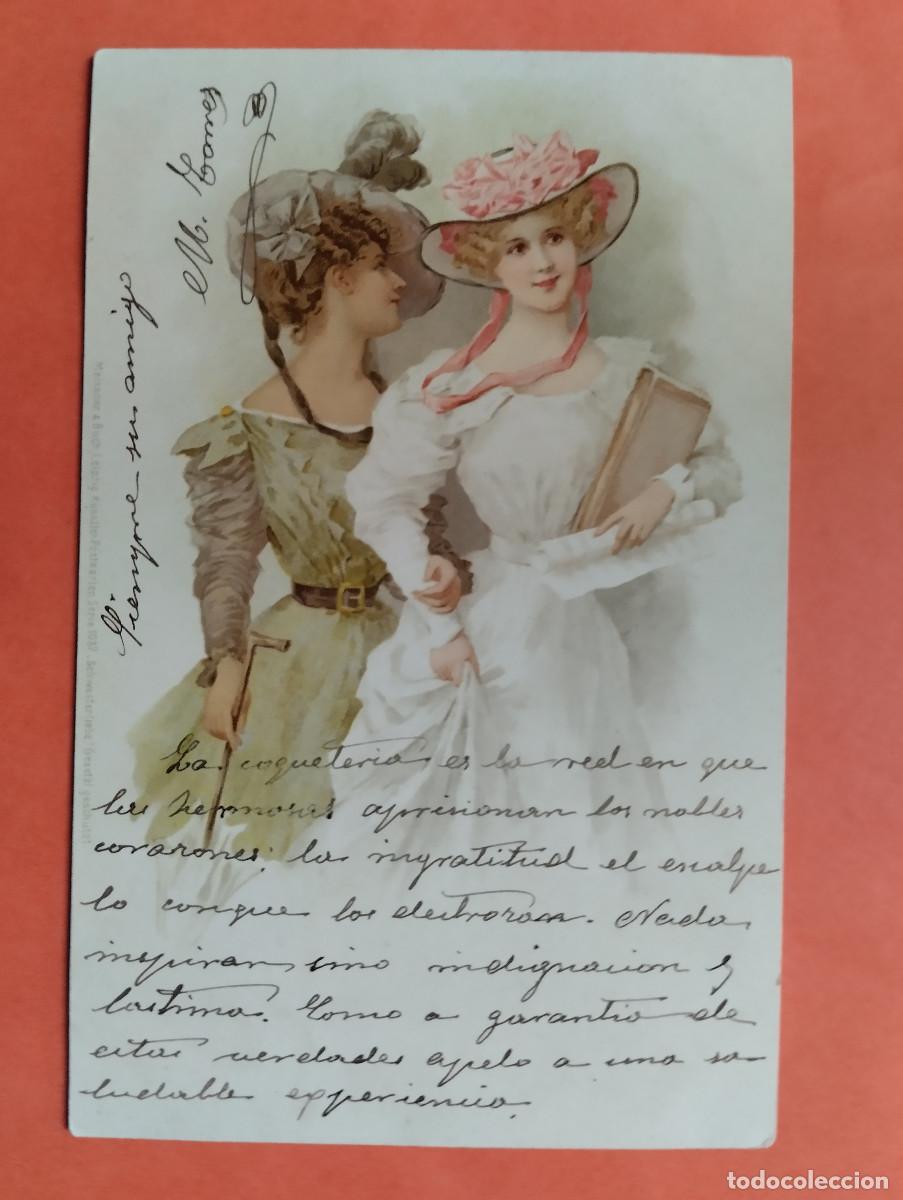 La coqueteria es la red en que
las hermosas aprisionan los nobles
corazones; la ingratitud el escalpe
lo conque los destrozan. Nada
inspiran sino indignacion y
lastima. Como a garantia de
estas verdades apelo a una sa-
ludable experiencia.
Siempre suamigo
M.
Meissner & Buch, Leipzig Künstler-Postkarten Serie 1037
todocoleccion